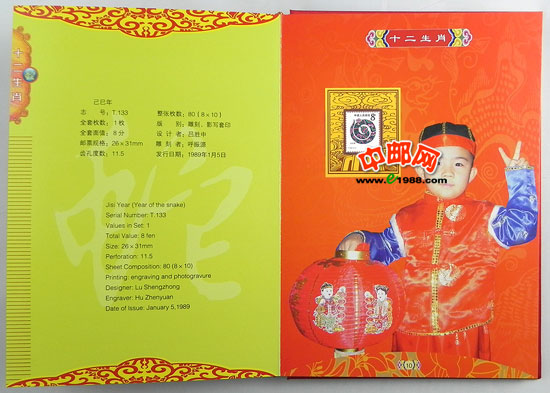 十二生肖
己巳年
志　号：T.133　整张枚数：80（8×10）
全套枚数：1枚　级　别：雕刻、影写套印
全套面值：8分　设 计 者：吕胜中
邮票规格：26×31mm　雕 刻 者：呼振源
齿孔度数：11.5　发行日期：1989年1月5日
Jisi Year (Year of the snake)
Serial Number: T.133
Values in Set: 1
Total Value: 8 fen
Size: 26 x 31mm
Perforation: 11.5
Sheet Composition: 80 (8 x 10)
Printing: engraving and photogravure
Designer: Lu Shengzhong
Engraver: Hu Zhenyuan
Date of Issue: January 5,1989
十二生肖
8
中邮网
www.e1988.com
10